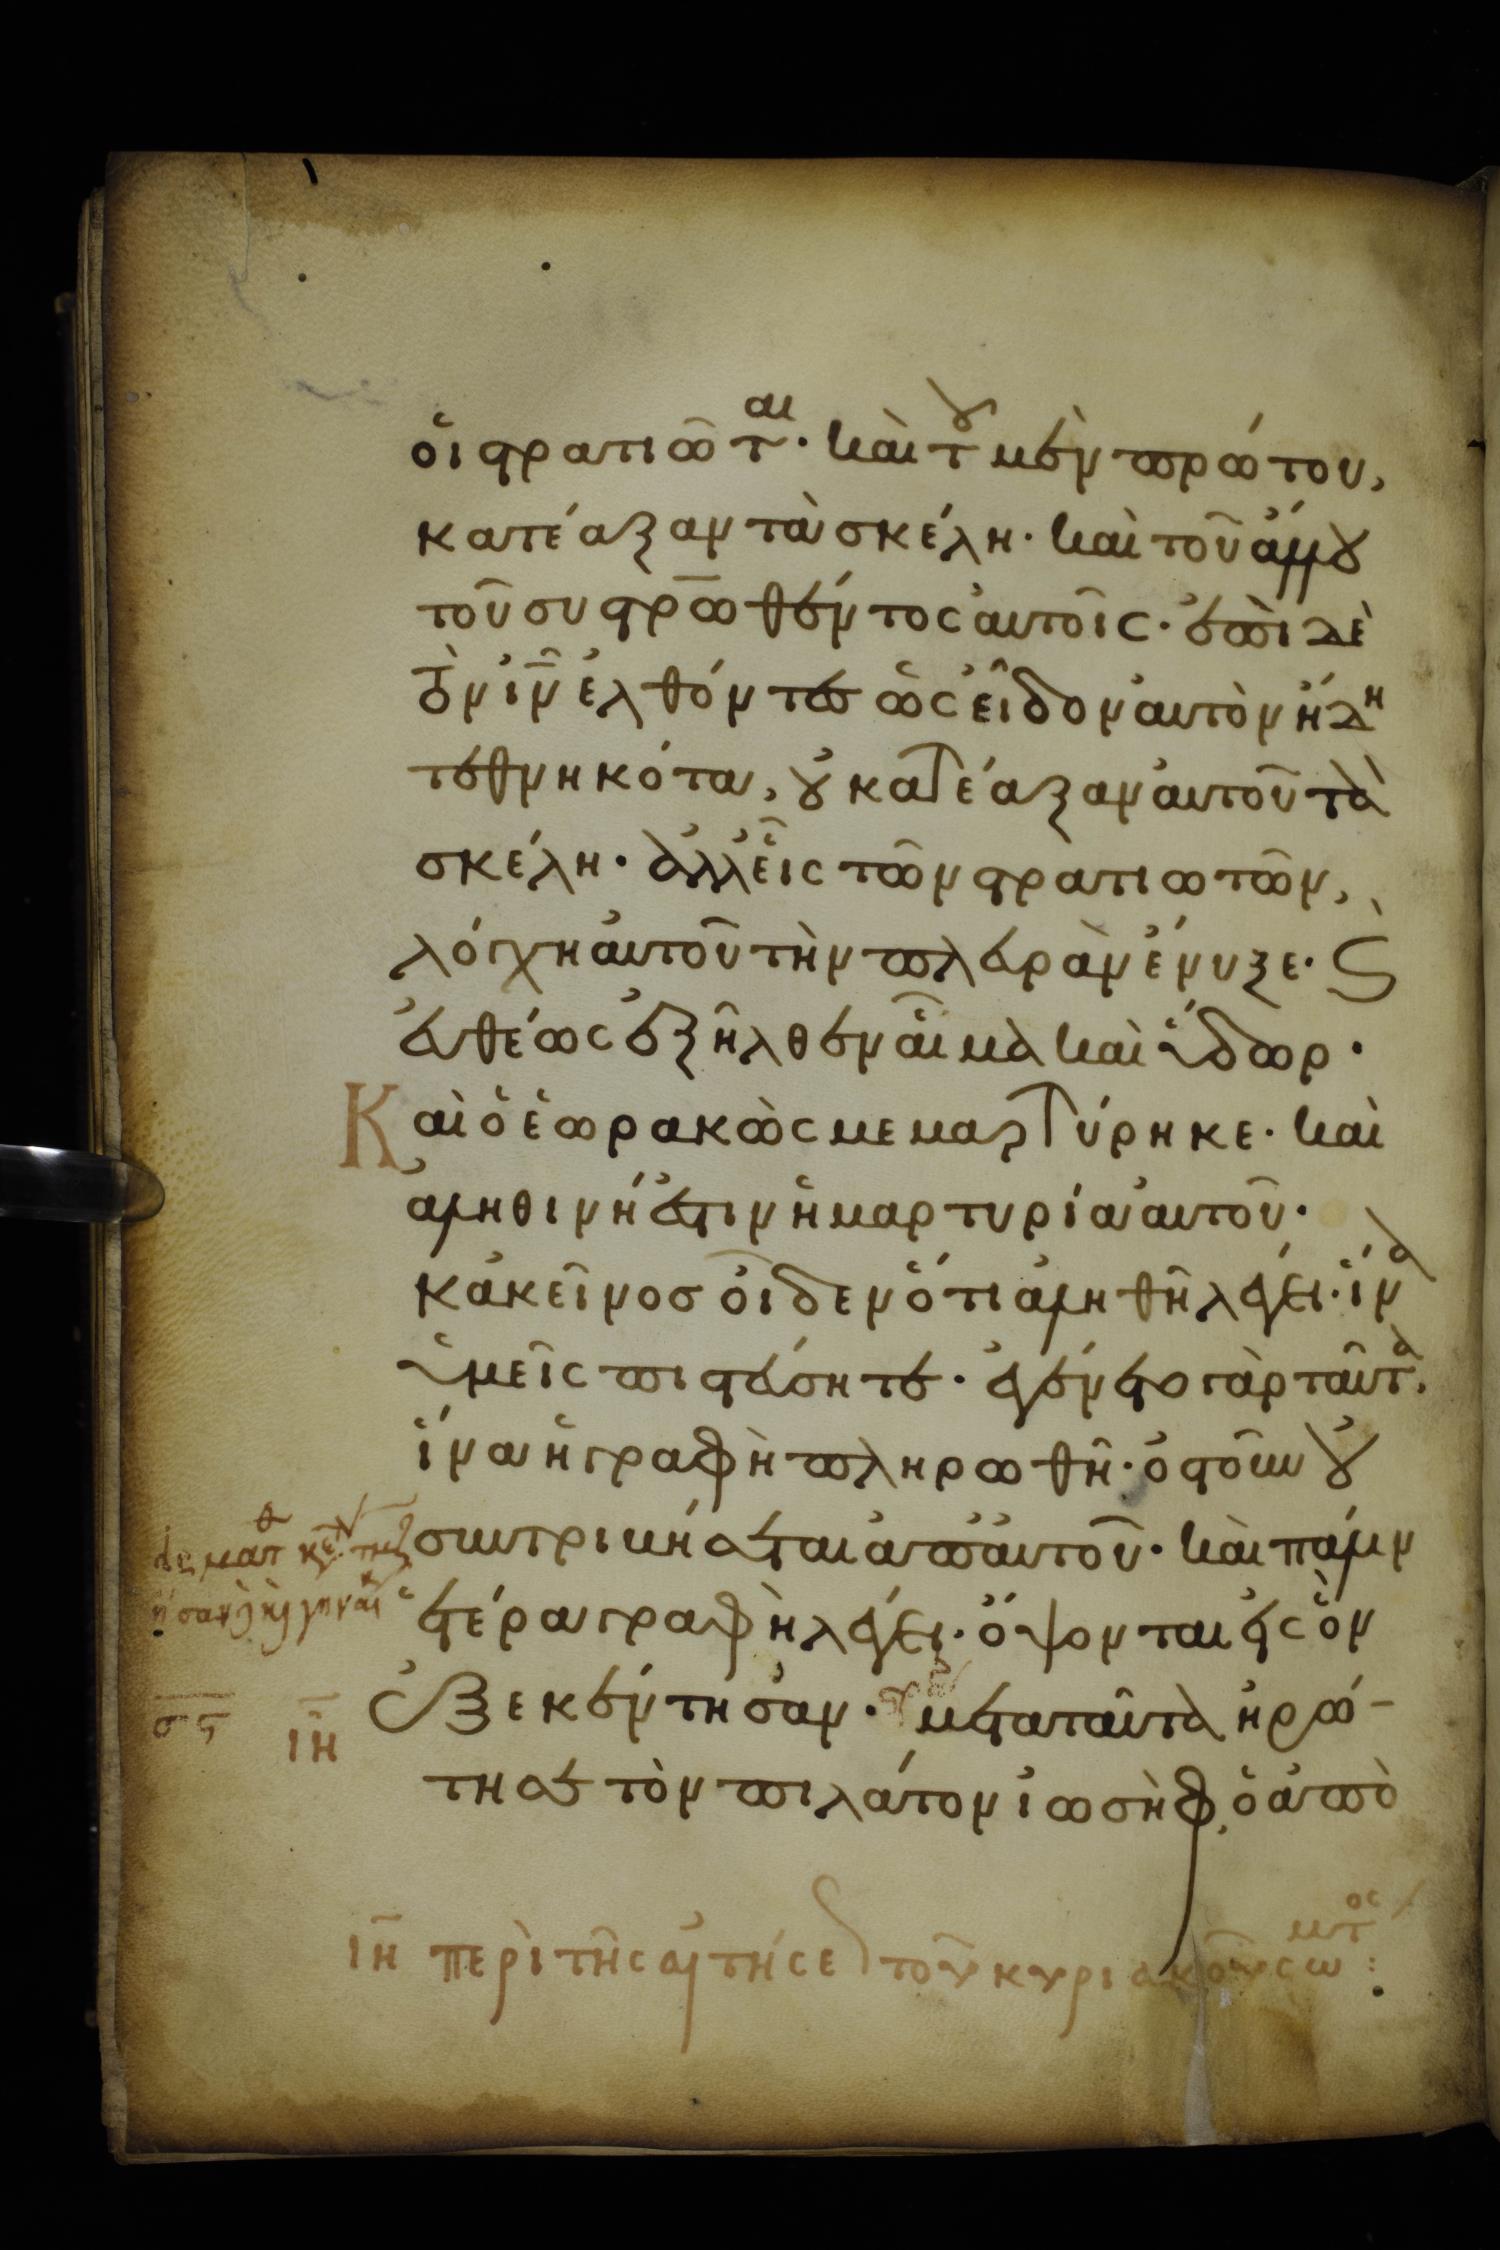 οἱ στρατιῶται· καὶ τοῦ μὲν πρώτου,
κατέαξαν τὰ σκέλη· καὶ τοῦ ἄλλου
τοῦ συστρωθέντος αὐτοῖς· ἐπὶ δὲ
τὸν ιν̅ ἐλθόντες ὡς εἶδον αὐτὸν ἤδη
τεθνηκότα, οὐ κατέαξαν αὐτοῦ τὰ
σκέλη· ἀλλ εἷς τῶν στρατιωτῶν,
λόγχη αὐτοῦ τὴν πλευρὰν ἔνυξε· καὶ
εὐθέως ἐξῆλθεν αἷμα καὶ ὕδωρ·
Καὶ ὁ ἑωρακὼς μεμαρτύρηκε· καὶ
ἀληθινή ἐστιν ἡ μαρτυρία αὐτοῦ·
κἀκεῖνοσ οἶδεν ὅτι ἀληθῆ λέγει· ἵνα
ὑμεῖς πιστεύσητε· ἐγένετο γὰρ ταῦτα,
ἵνα ἡ γραφὴ πληρωθῆ· ὀστοῦν οὐ
συντριβήσεται ἀπ αὐτοῦ· καὶ πάλιν
ἑτέρα γραφὴ λέγει· ὄψονται εἰς ὃν
ἐξεκέντησαν· μετὰ ταῦτα ἠρώ-
τησε τὸν πιλάτον ἰωσὴφ, ὁ ἀπὸ
σϛ
ιη
ιη περὶ τῆς αἰτήσε τοῦ κυριακοῦ σώματος: